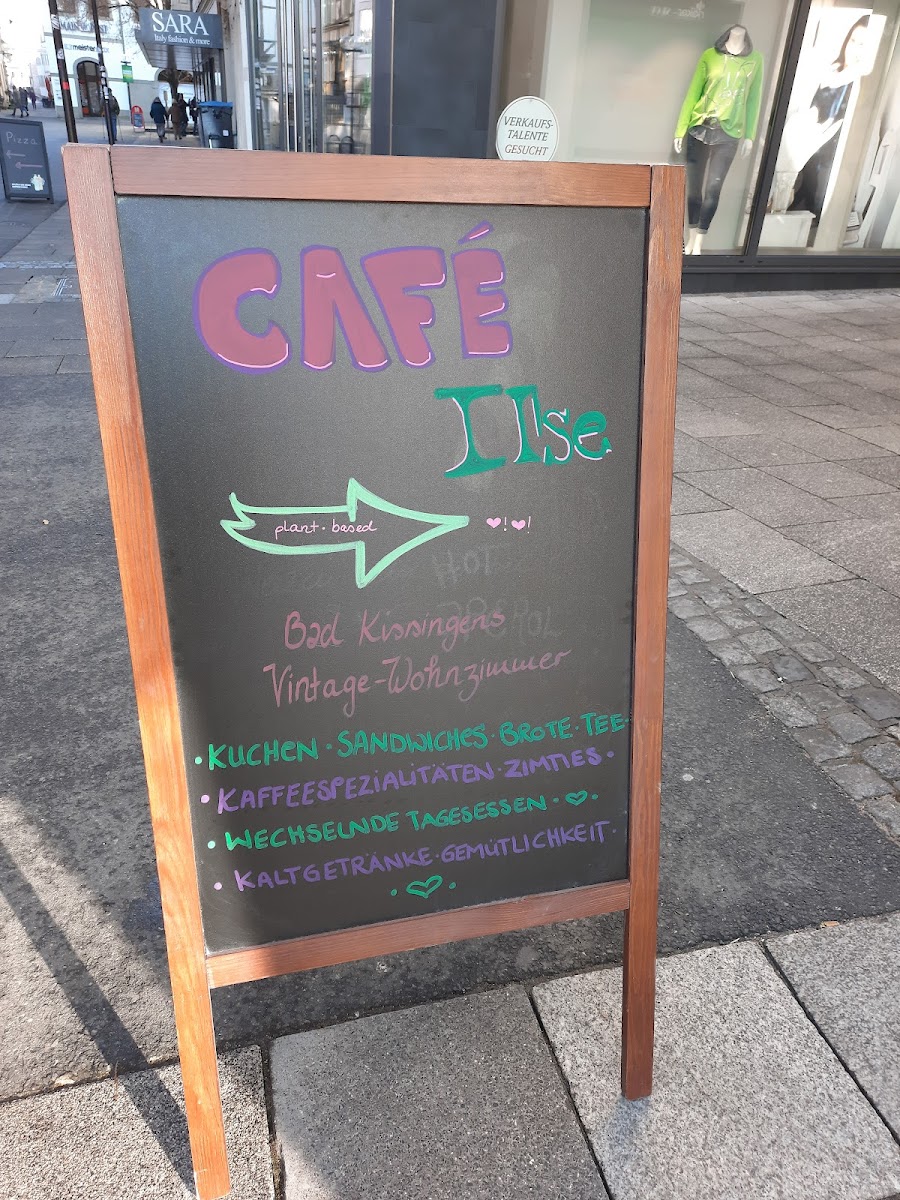 SARA
Italy fashion & more
Pizza
VERKAUFS-
TALENTE
GESUCHT
CAFÉ
Ilse
plant · based
♥!♥!
HOT
Bad Kissingens
Vintage-Wohnzimmer
· KUCHEN · SANDWICHES · BROTE · TEE ·
· KAFFEESPEZIALITÄTEN · ZIMTIES ·
· WECHSELNDE TAGESESSEN · ♡ ·
· KALTGETRÄNKE · GEMÜTLICHKEIT ·
· ♡ ·